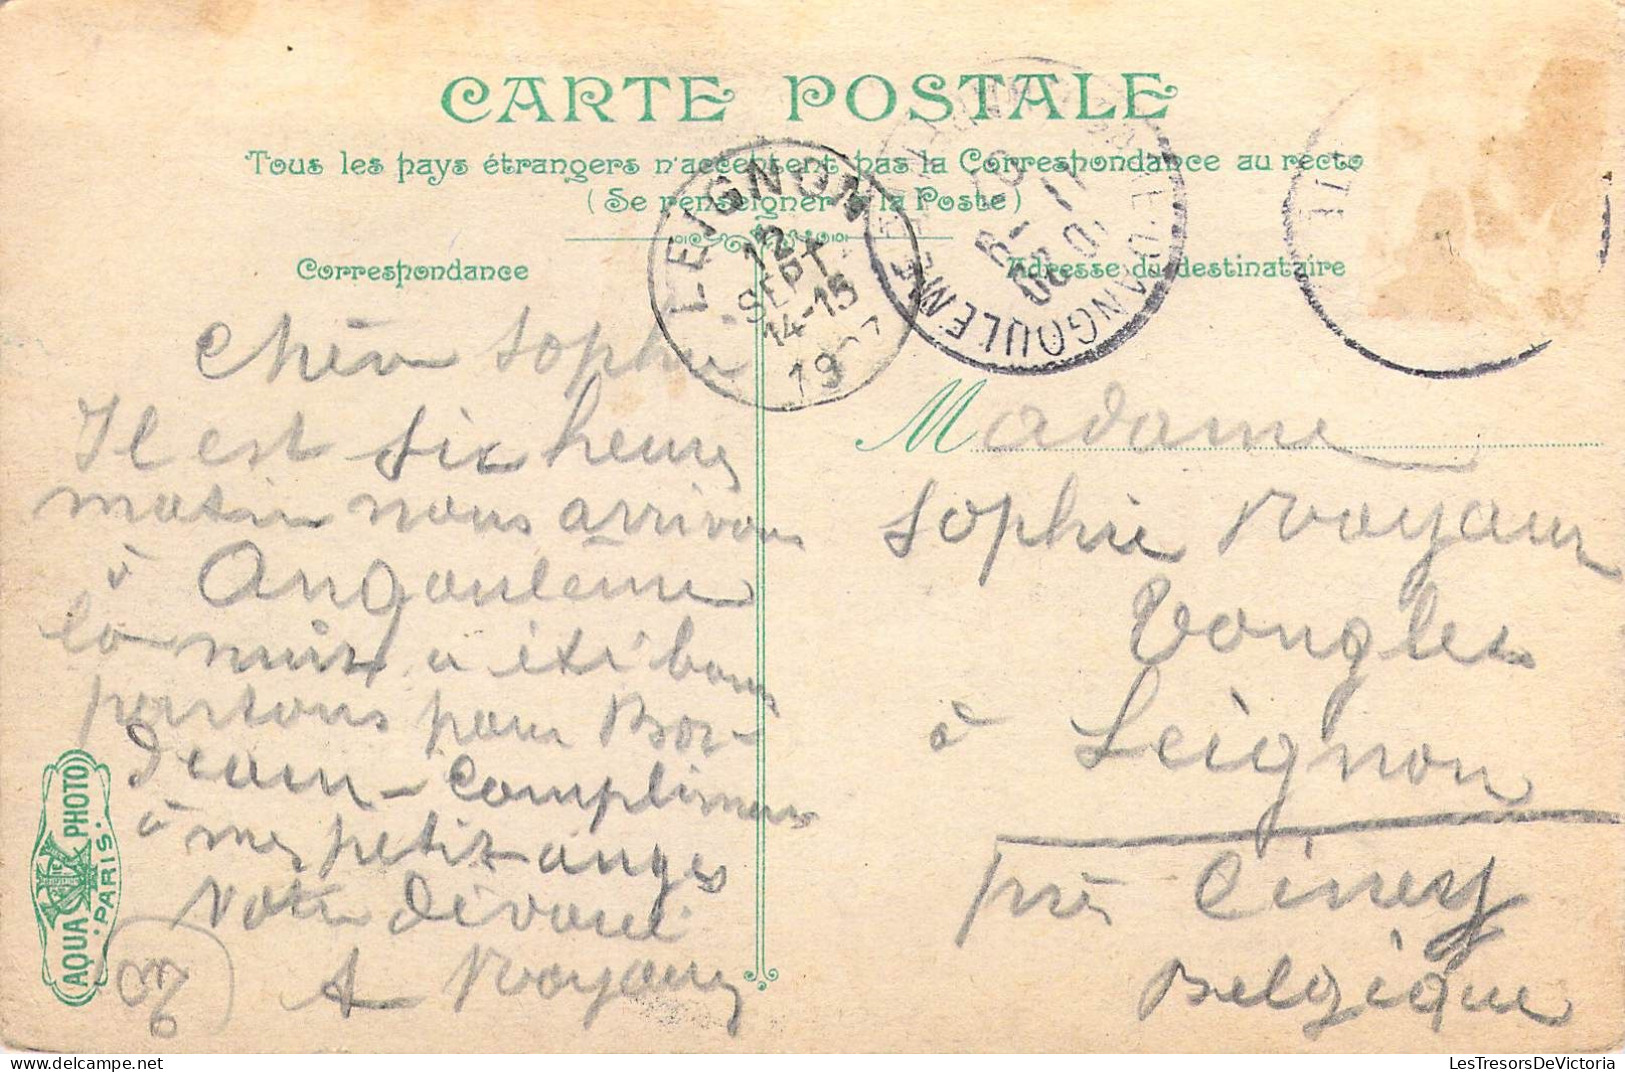 CARTE POSTALE
Tous les pays étrangers n'acceptent pas la Correspondance au recto
(Se renseigner à la Poste)
Correspondance
Adresse du destinataire
LEIGNON
12
SEPT
14-15
19
ANGOULEME
Chère Sophie
Il est six heures
matin nous arrivons
à Angoulême
la nuit a été bonne
partons pour Bor-
deaux - Compliments
à mes petits anges
Votre dévoué
A
Madame
Sophie
à Leignon
près Ciney
Belgique
AQUA PHOTO
PARIS
LesTresorsDeVictoria